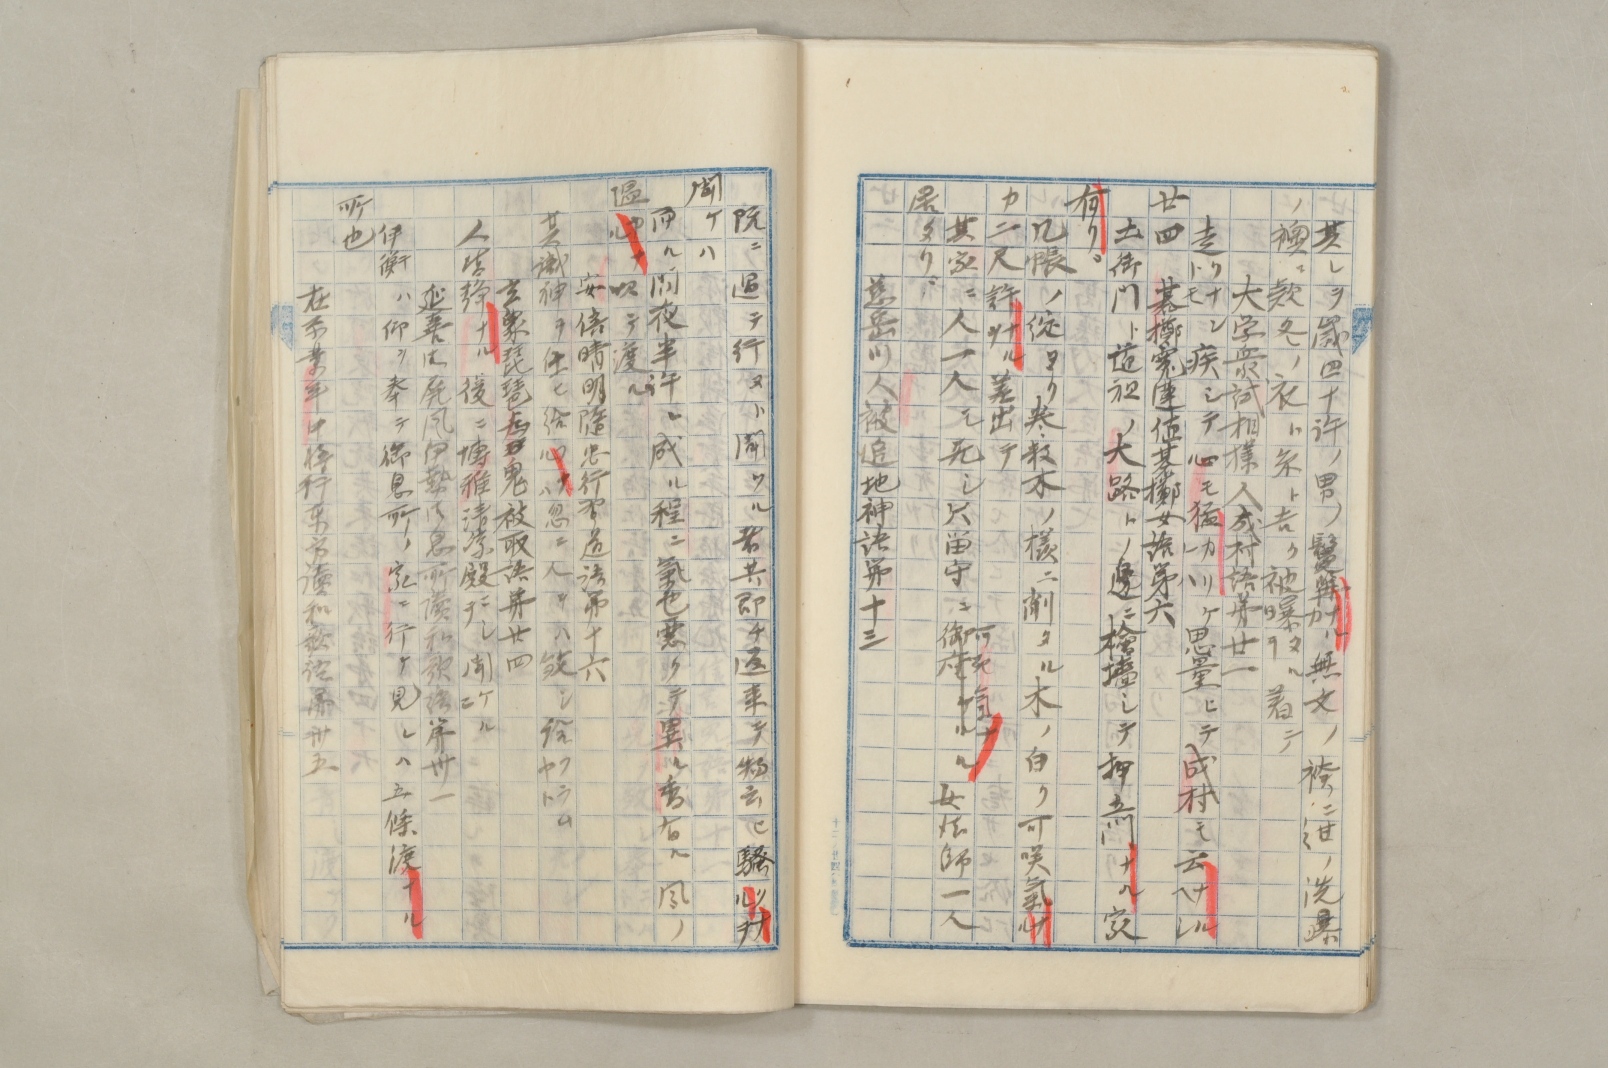 其レヲ歳四十許ノ男ノ鬚鬢ナル無文ノ袴ニ 洗曝
ノ襖 欵冬ノ衣ト
被曝タル 着テ
大学衆試相撲人成村語第廿一
走リナン疾シテ心モ猛カリケ思量ヒテ成村モ云ヘナル
廿四 碁擲寛蓮値碁擲女語第六
土御門ト道祖ノ大路トノ邊ニ檜墻シテ押立門ナル家
有リ
几帳ノ綻ヨリ巻数木ノ様ニ削タル木ノ白ク可咲氣ナル
カ二尺許ナル差出テ
其家ニ人一人モ无シ只留守ニ可死氣ナ御座ケル女法師一人
居タリ
慈岳川人被追地神語第十三
院ニ過テ行ヌト聞ツル者共即チ返来テ物云ヒ騒
聞ケハ
而ル間夜半許ニ成ル程ニ氣色悪クテ異ル香有ル風ノ
温 吹テ渡ル
安倍晴明隨忠行習道語第十六
其識神ヲ仕ヒ給 忽ニ人ヲハ 給ラム
玄象琵琶為鬼被取語第廿四
人皆静ナル後ニ博雅清涼殿ニシテ聞ケルニ
延喜御屏風伊勢御息所讀和歌語第卅一
伊衡ハ仰ヲ奉テ御息所ノ家ニ行テ見レハ五條渡ナル
所也
在原業平中将行東方讀和歌語第卅五